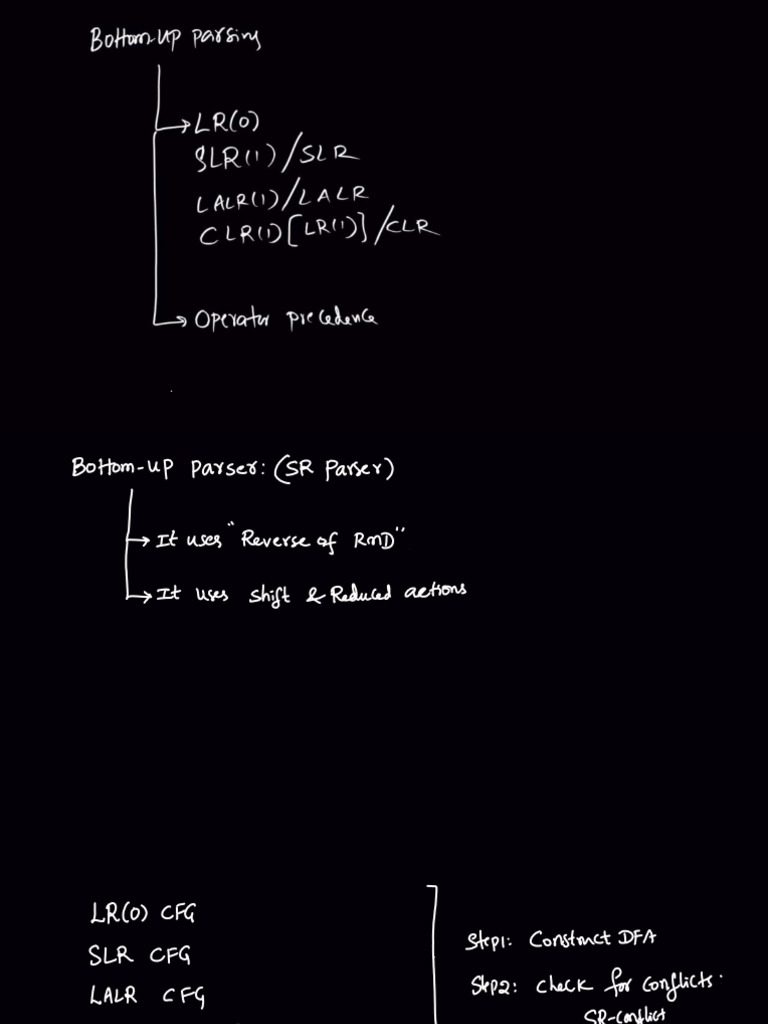 Bottom-up parsing
LR(0)
SLR(1)/SLR
LALR(1)/LALR
CLR(1)[LR(1)]/CLR
Operator precedence
Bottom-up parser: (SR parser)
It uses "Reverse of RMD"
It uses shift & Reduced actions
LR(0) CFG
SLR CFG
LALR CFG
Step1: Construct DFA
Step2: check for conflicts.
SR-conflict